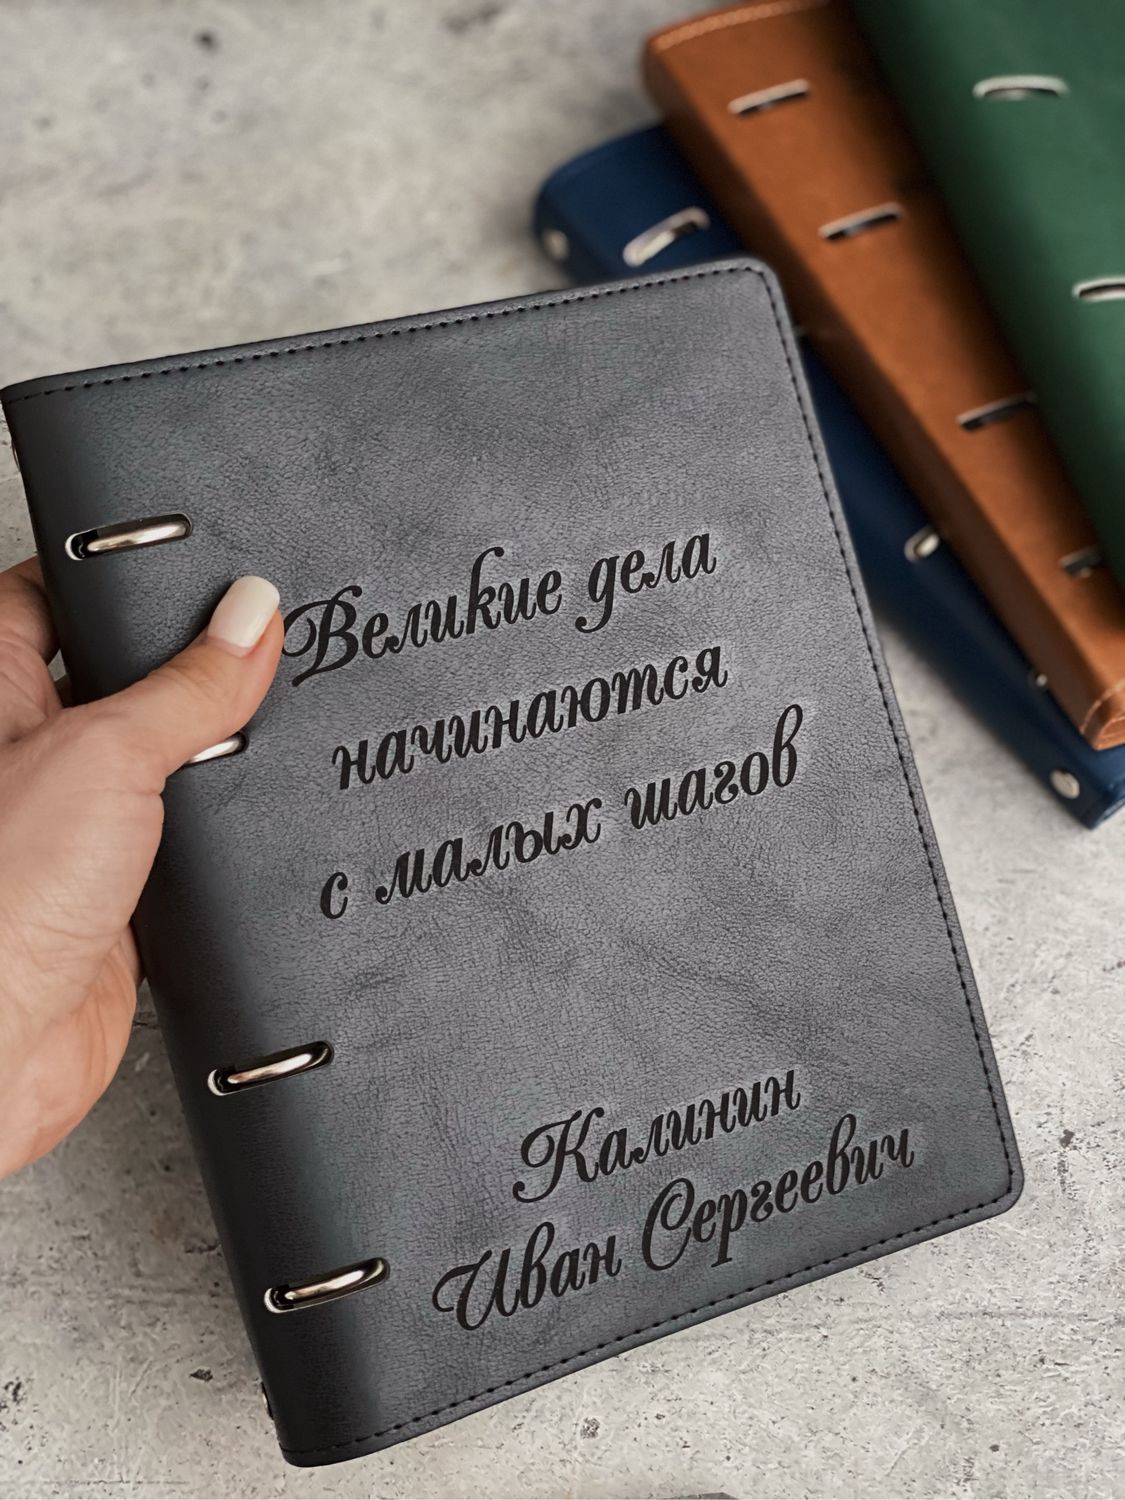 Великие дела
начинаются
с малых шагов
Калинин
Иван Сергеевич